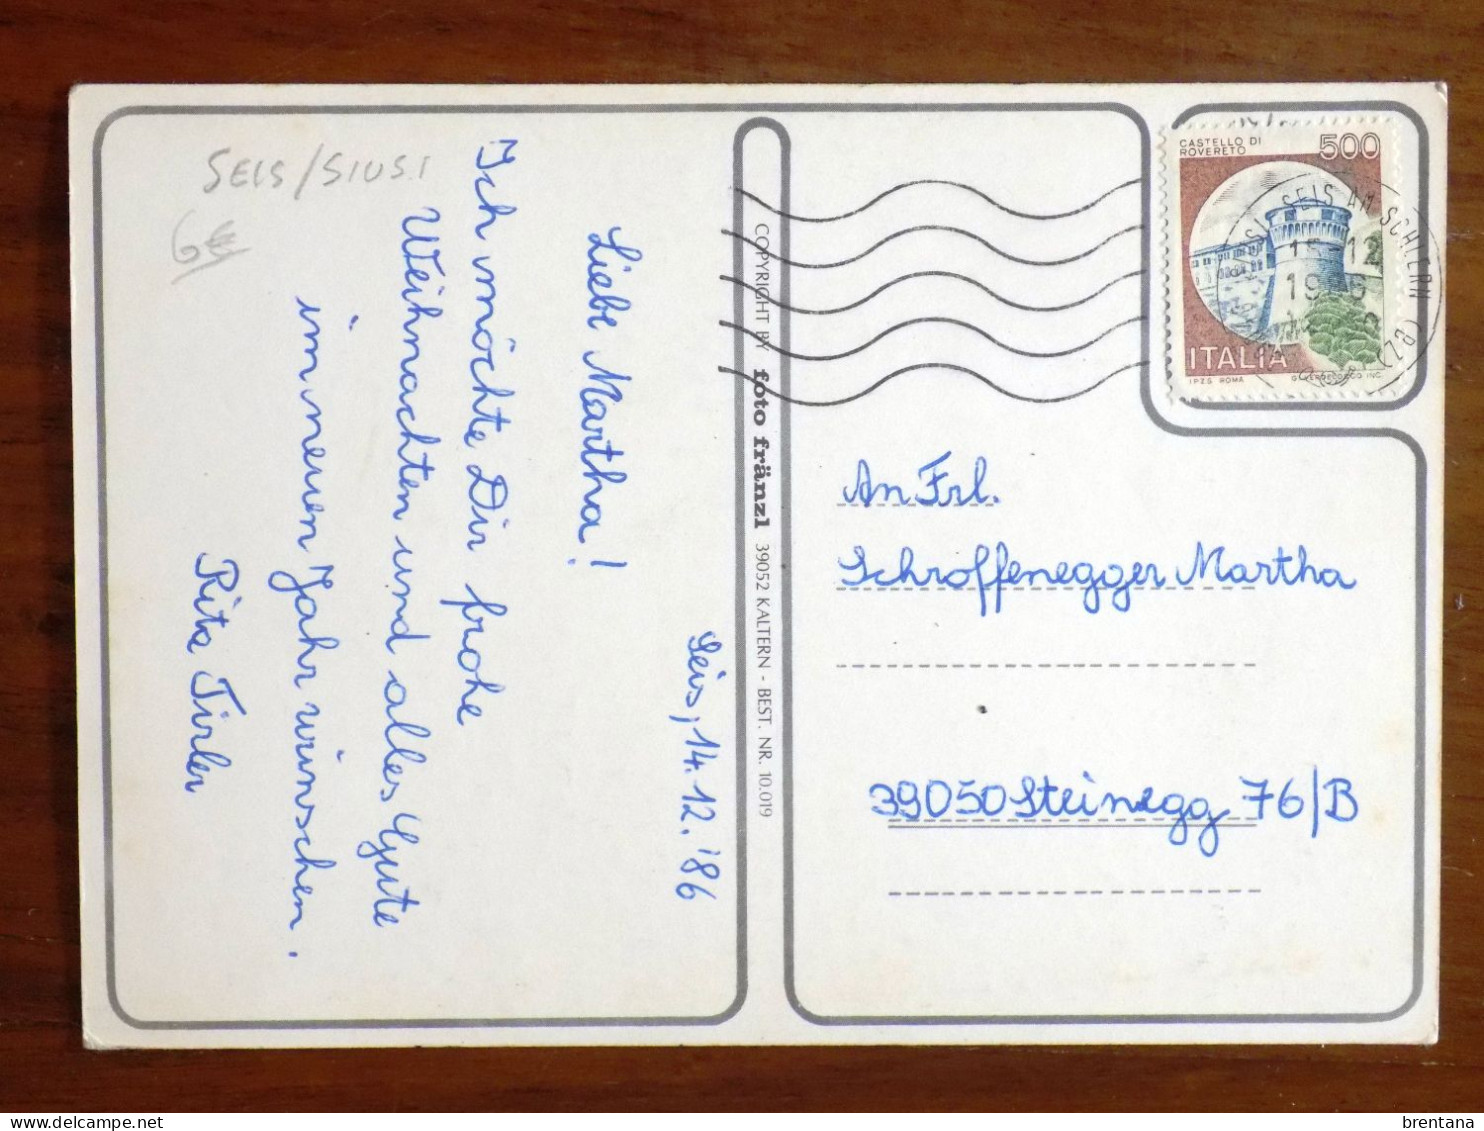 SEIS/SIUSI
6€
Seis, 14.12.'86
Liebe Martha!
Ich möchte Dir frohe
Weihnachten und alles Gute
im neuen Jahr wünschen.
Rita Tirler
COPYRIGHT BY foto fränzl 39052 KALTERN - BEST. NR. 10.019
CASTELLO DI
ROVERETO
500
ITALIA
I.P.Z.S. ROMA
SEIS AM SCHLERN
15-12
1986
(BZ)
An Frl.
Schroffenegger Martha
39050 Steinegg 76/B
brentana